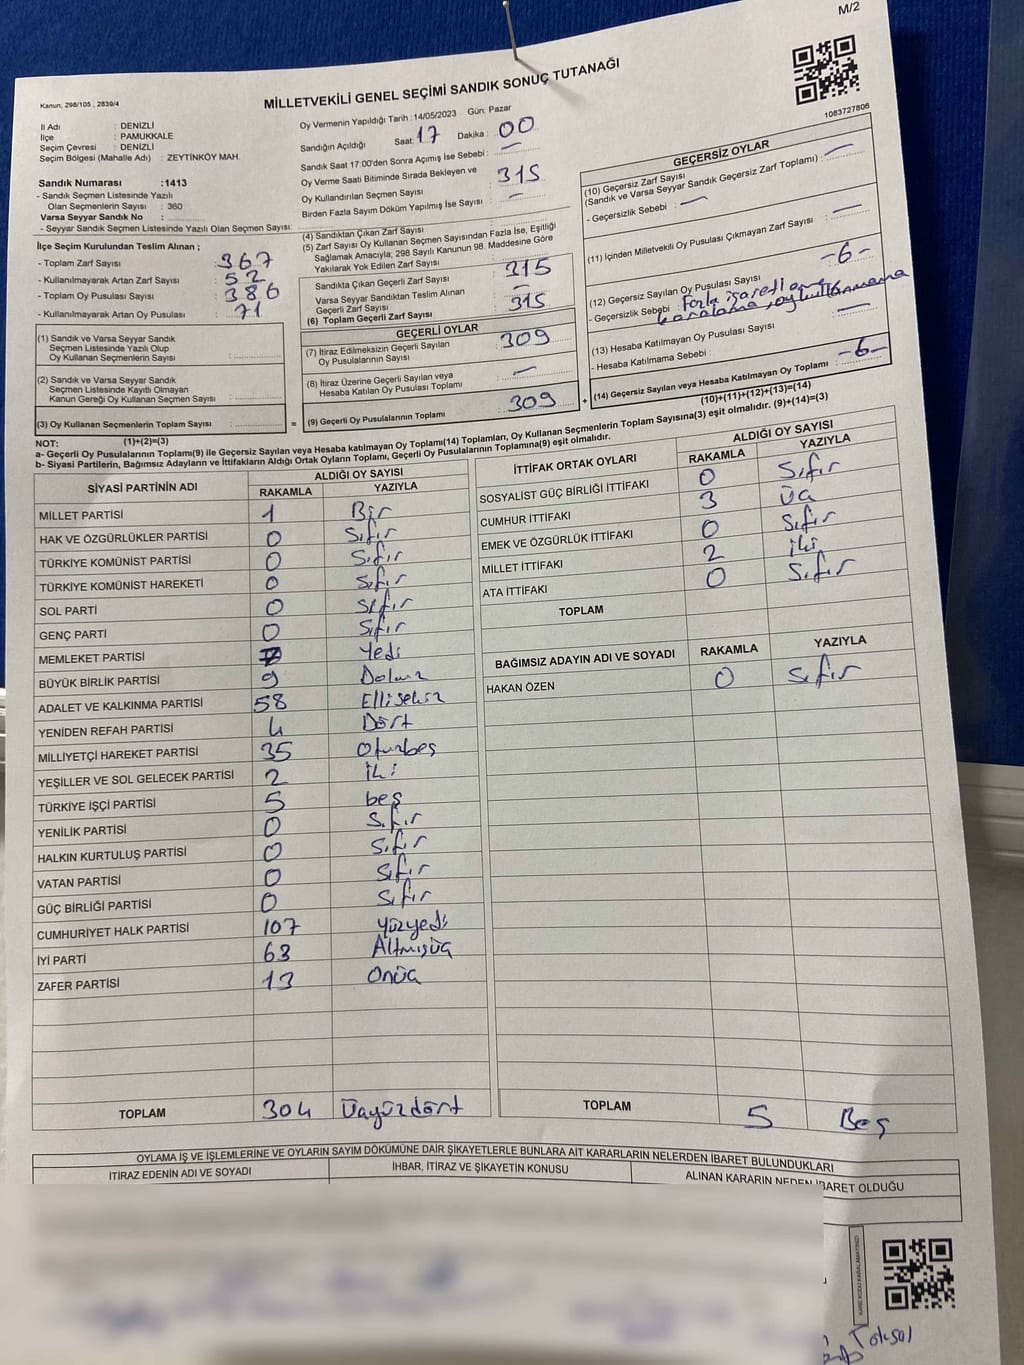 M/2
Kanun, 298/105 , 2839/4
MİLLETVEKİLİ GENEL SEÇİMİ SANDIK SONUÇ TUTANAĞI
1083727806
İl Adı : DENİZLİ
İlçe : PAMUKKALE
Seçim Çevresi : DENİZLİ
Seçim Bölgesi (Mahalle Adı) : ZEYTİNKÖY MAH.
Sandık Numarası :1413
- Sandık Seçmen Listesinde Yazılı
Olan Seçmenlerin Sayısı : 360
Varsa Seyyar Sandık No :
- Seyyar Sandık Seçmen Listesinde Yazılı Olan Seçmen Sayısı:
İlçe Seçim Kurulundan Teslim Alınan ;
- Toplam Zarf Sayısı : 367
- Kullanılmayarak Artan Zarf Sayısı : 52
- Toplam Oy Pusulası Sayısı : 386
- Kullanılmayarak Artan Oy Pusulası : 71
(1) Sandık ve Varsa Seyyar Sandık
Seçmen Listesinde Yazılı Olup
Oy Kullanan Seçmenlerin Sayısı :
(2) Sandık ve Varsa Seyyar Sandık
Seçmen Listesinde Kayıtlı Olmayan
Kanun Gereği Oy Kullanan Seçmen Sayısı :
(3) Oy Kullanan Seçmenlerin Toplam Sayısı :
Oy Vermenin Yapıldığı Tarih : 14/05/2023 Gün: Pazar
Sandığın Açıldığı Saat: 17 Dakika : 00
Sandık Saat 17:00'den Sonra Açılmış İse Sebebi : —
Oy Verme Saati Bitiminde Sırada Bekleyen ve
Oy Kullandırılan Seçmen Sayısı : 315
Birden Fazla Sayım Döküm Yapılmış İse Sayısı : —
(4) Sandıktan Çıkan Zarf Sayısı :
(5) Zarf Sayısı Oy Kullanan Seçmen Sayısından Fazla İse, Eşitliği
Sağlamak Amacıyla, 298 Sayılı Kanunun 98. Maddesine Göre
Yakılarak Yok Edilen Zarf Sayısı :
Sandıkta Çıkan Geçerli Zarf Sayısı : 315
Varsa Seyyar Sandıktan Teslim Alınan
Geçerli Zarf Sayısı : —
(6) Toplam Geçerli Zarf Sayısı : 315
GEÇERLİ OYLAR
(7) İtiraz Edilmeksizin Geçerli Sayılan
Oy Pusulalarının Sayısı : 309
(8) İtiraz Üzerine Geçerli Sayılan veya
Hesaba Katılan Oy Pusulası Toplamı : —
= (9) Geçerli Oy Pusulalarının Toplamı : 309
GEÇERSİZ OYLAR
(10) Geçersiz Zarf Sayısı
(Sandık ve Varsa Seyyar Sandık Geçersiz Zarf Toplamı) : —
- Geçersizlik Sebebi : —
(11) İçinden Milletvekili Oy Pusulası Çıkmayan Zarf Sayısı : —
(12) Geçersiz Sayılan Oy Pusulası Sayısı : -6-
- Geçersizlik Sebebi : Fazla işaretleme
karalama, oy kullanmama
(13) Hesaba Katılmayan Oy Pusulası Sayısı : —
- Hesaba Katılmama Sebebi :
+ (14) Geçersiz Sayılan veya Hesaba Katılmayan Oy Toplamı : -6-
(10)+(11)+(12)+(13)=(14)
NOT: (1)+(2)=(3)
a- Geçerli Oy Pusulalarının Toplamı(9) ile Geçersiz Sayılan veya Hesaba katılmayan Oy Toplamı(14) Toplamları, Oy Kullanan Seçmenlerin Toplam Sayısına(3) eşit olmalıdır. (9)+(14)=(3)
b- Siyasi Partilerin, Bağımsız Adayların ve İttifakların Aldığı Ortak Oyların Toplamı, Geçerli Oy Pusulalarının Toplamına(9) eşit olmalıdır.
SİYASİ PARTİNİN ADI ALDIĞI OY SAYISI
RAKAMLA YAZIYLA
MİLLET PARTİSİ 1 Bir
HAK VE ÖZGÜRLÜKLER PARTİSİ 0 Sıfır
TÜRKİYE KOMÜNİST PARTİSİ 0 Sıfır
TÜRKİYE KOMÜNİST HAREKETİ 0 Sıfır
SOL PARTİ 0 Sıfır
GENÇ PARTİ 0 Sıfır
MEMLEKET PARTİSİ 7 Yedi
BÜYÜK BİRLİK PARTİSİ 9 Dokuz
ADALET VE KALKINMA PARTİSİ 58 Ellisekiz
YENİDEN REFAH PARTİSİ 4 Dört
MİLLİYETÇİ HAREKET PARTİSİ 35 Otuzbeş
YEŞİLLER VE SOL GELECEK PARTİSİ 2 İki
TÜRKİYE İŞÇİ PARTİSİ 5 beş
YENİLİK PARTİSİ 0 Sıfır
HALKIN KURTULUŞ PARTİSİ 0 Sıfır
VATAN PARTİSİ 0 Sıfır
GÜÇ BİRLİĞİ PARTİSİ 0 Sıfır
CUMHURİYET HALK PARTİSİ 107 Yüzyedi
İYİ PARTİ 63 Altmışüç
ZAFER PARTİSİ 13 Onüç
TOPLAM 304 Üçyüzdört
İTTİFAK ORTAK OYLARI ALDIĞI OY SAYISI
RAKAMLA YAZIYLA
SOSYALİST GÜÇ BİRLİĞİ İTTİFAKI 0 Sıfır
CUMHUR İTTİFAKI 3 Üç
EMEK VE ÖZGÜRLÜK İTTİFAKI 0 Sıfır
MİLLET İTTİFAKI 2 İki
ATA İTTİFAKI 0 Sıfır
TOPLAM
BAĞIMSIZ ADAYIN ADI VE SOYADI RAKAMLA YAZIYLA
HAKAN ÖZEN 0 Sıfır
TOPLAM 5 Beş
OYLAMA İŞ VE İŞLEMLERİNE VE OYLARIN SAYIM DÖKÜMÜNE DAİR ŞİKAYETLERLE BUNLARA AİT KARARLARIN NELERDEN İBARET BULUNDUKLARI
İTİRAZ EDENİN ADI VE SOYADI İHBAR, İTİRAZ VE ŞİKAYETİN KONUSU ALINAN KARARIN NEDEN İBARET OLDUĞU